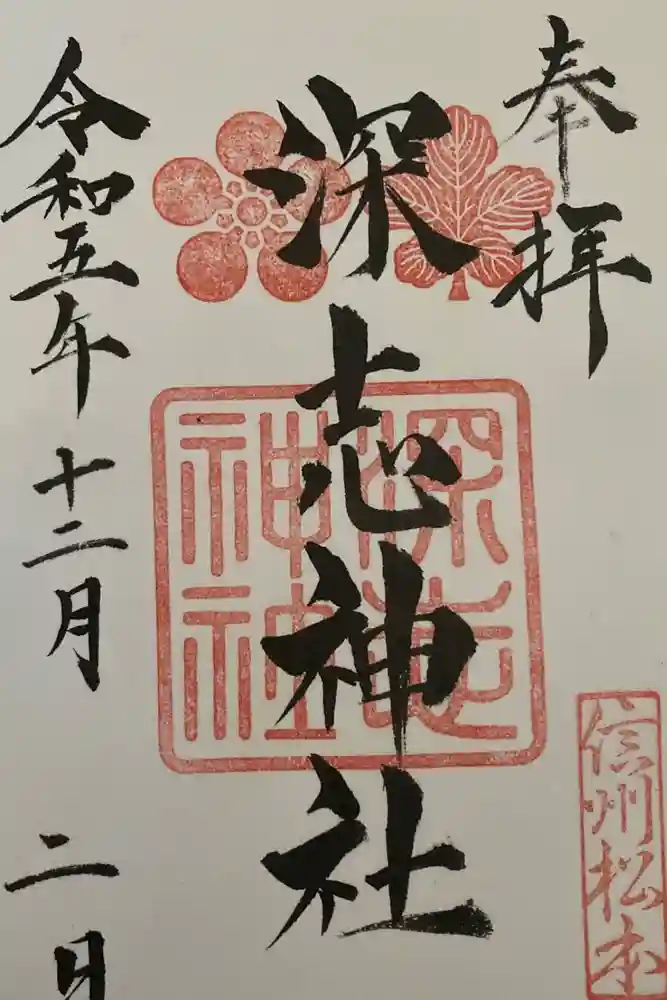 奉拝
深志神社
深志
神社
信州松本
令和五年十二月二日